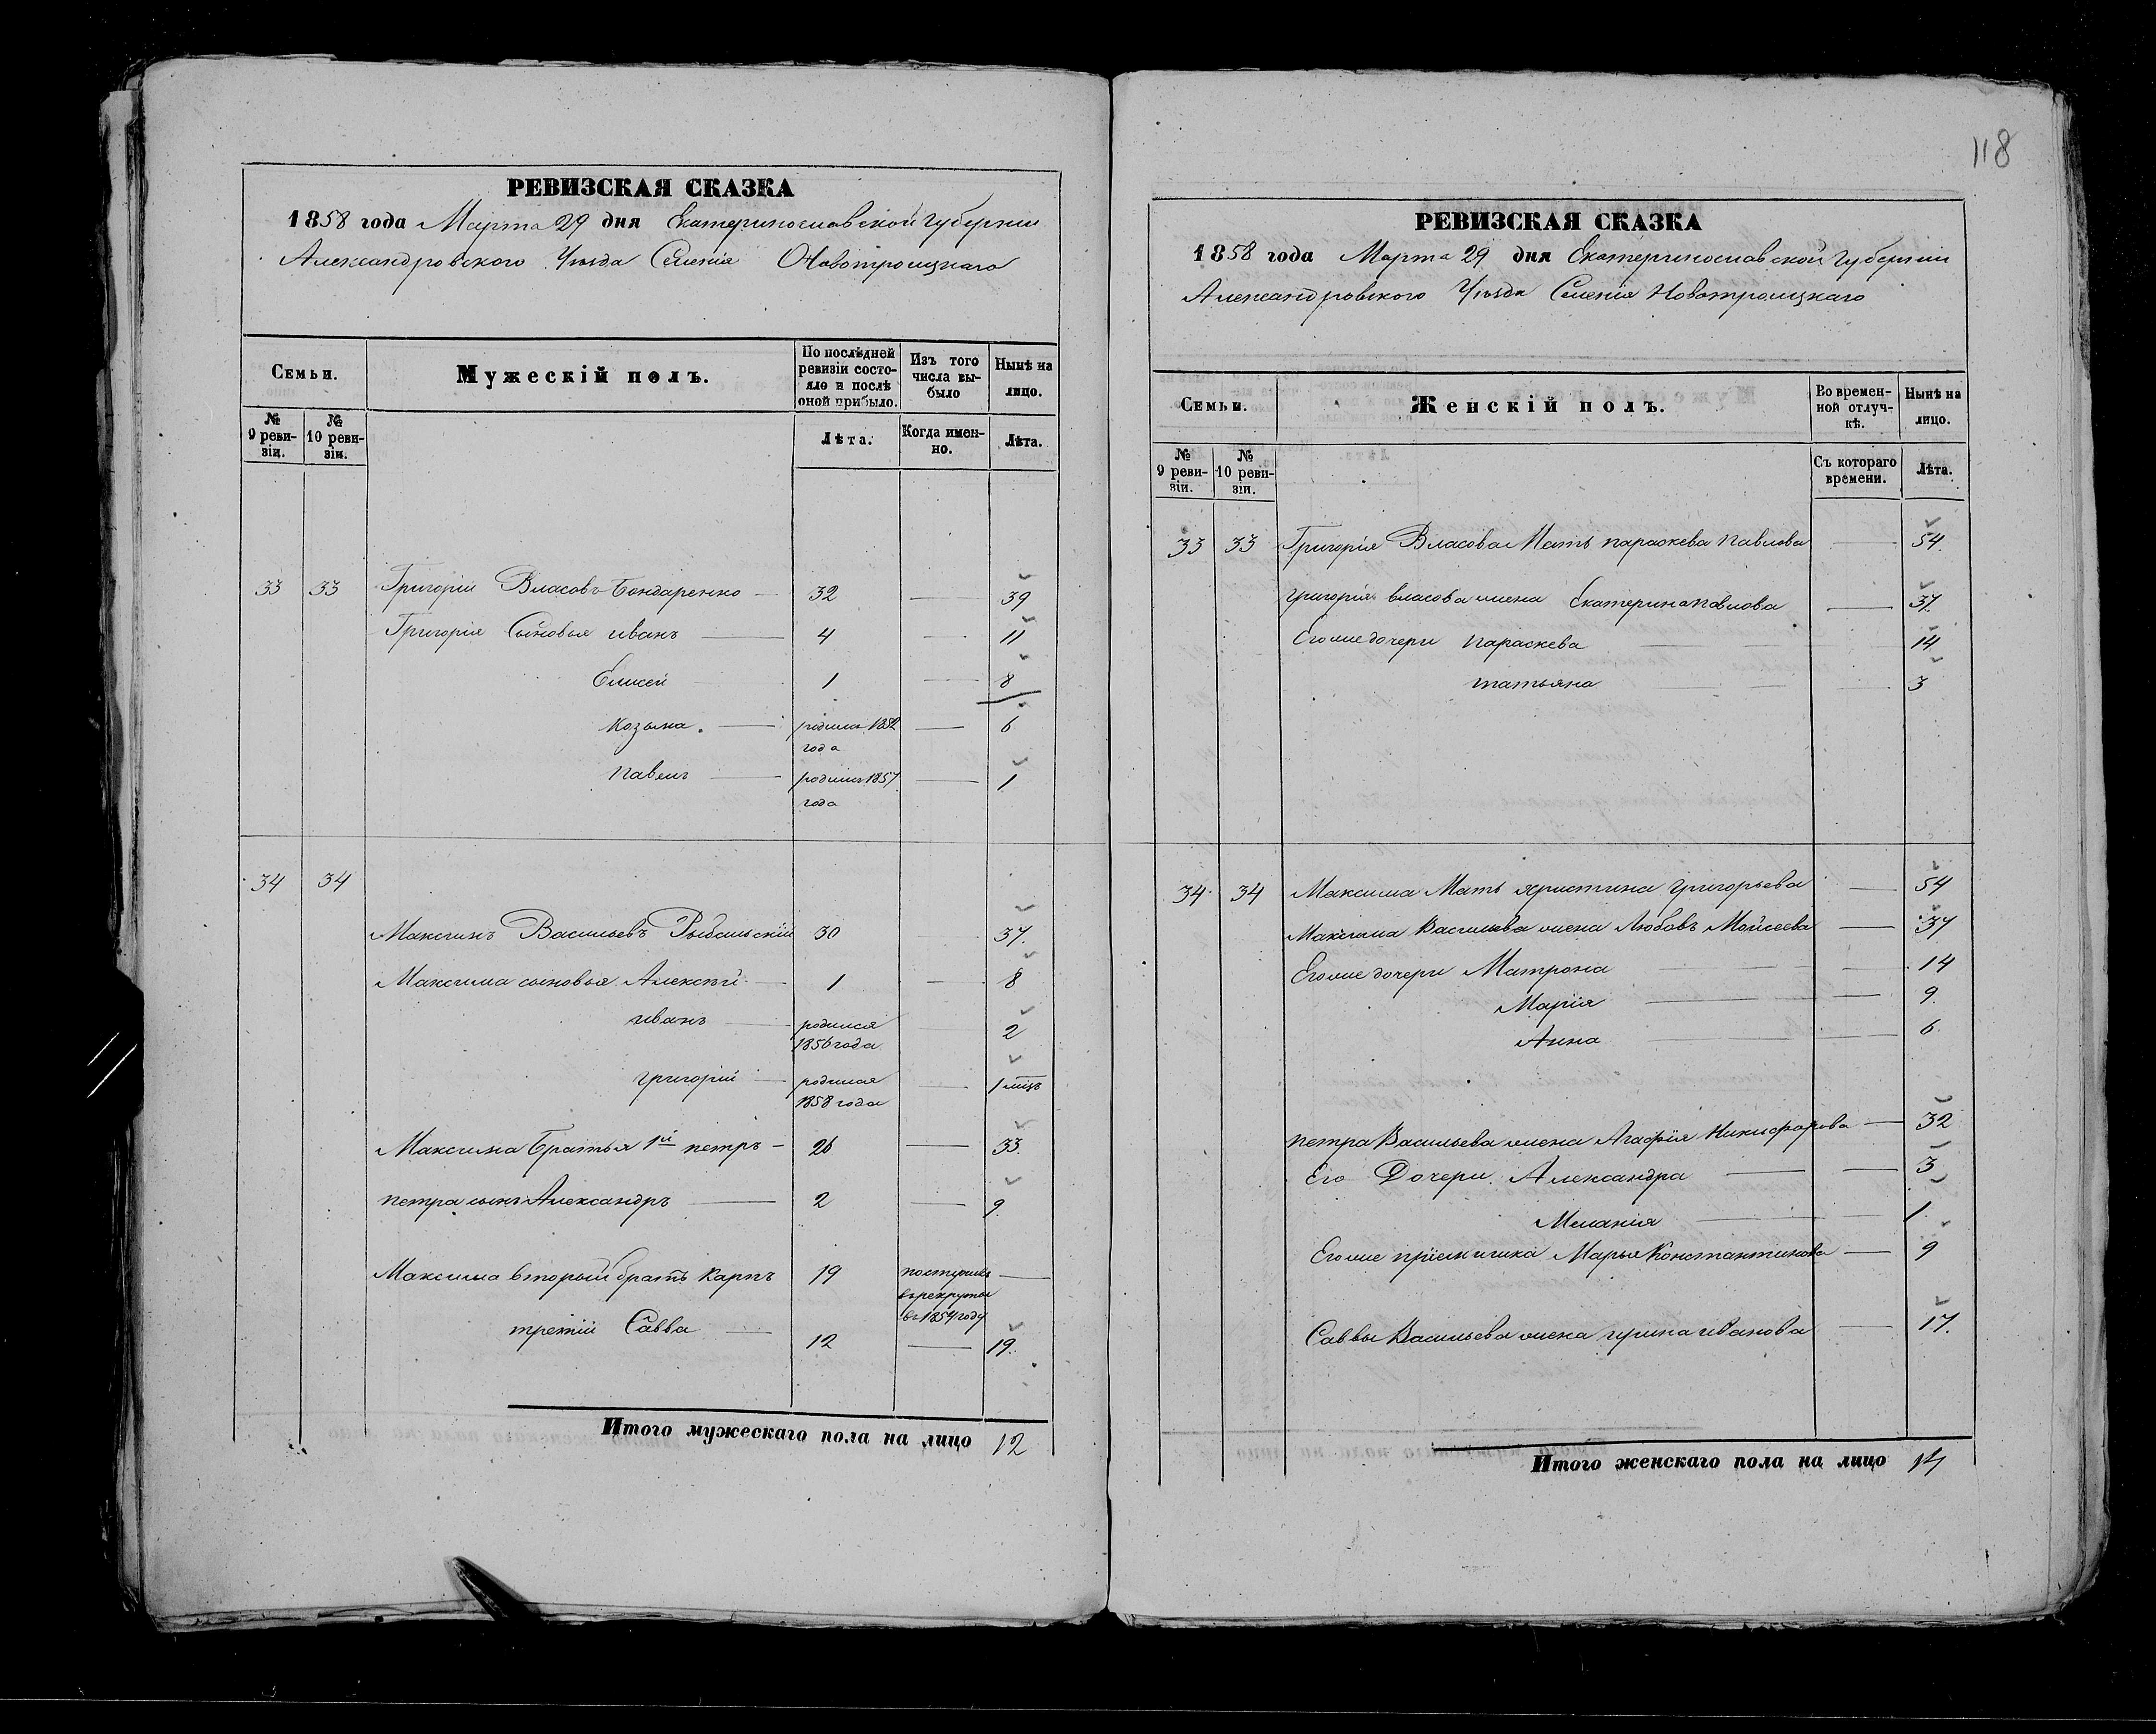 118
РЕВИЗСКАЯ СКАЗКА
1858 года Марта 29 дня Екатеринославской Губернии
Александровского Уѣзда Селенія Новотроицкаго
Семьи.
Мужескій полъ.
По послѣдней ревизіи состояло и послѣ оной прибыло.
Изъ того числа выбыло
Нынѣ на лицо.
№ 9 ревизіи.
№ 10 ревизіи.
Лѣта.
Когда именно.
Лѣта.
33 33 Григорій Власовъ Бондаренко — 32 — 39
Григорія Сыновья иванъ — 4 — 11
Елисей 1 — 8
Козьма. — родился 1852 года — 6
павелъ — родился 1857 года — 1
34 34
Максимъ Васильевъ Рыбальскій 30 — 37.
Максима сыновья Алексѣй — 1 — 8
иванъ — родился 1856 года 2
григорій — родился 1858 года — 1 мцъ
Максима Братья 1й петръ — 26 — 33.
петра сынъ Александръ — 2 — 9
Максима вторый братъ Карпъ 19 поступилъ в рекруты в 1854 году —
третій Савва — 12 — 19.
Итого мужескаго пола на лицо 12
РЕВИЗСКАЯ СКАЗКА
1858 года Марта 29 дня Екатеринославской Губерніи
Александровского Уѣзда Селенія Новотроицкаго
Семьи.
Женскій полъ.
Во временной отлучкѣ.
Нынѣ на лицо.
№ 9 ревизіи.
№ 10 ревизіи.
Съ котораго времени.
Лѣта.
33 33 Григорія Власова Мать параскева павлова — 54.
григорія власова жена Екатерина павлова — 37.
Его же дочери параскева — 14
татьяна — 3
34 34 Максима Мать христина григорьева — 54
Максима Васильева жена Любовъ Мойсеева — 37
Его же дочери Матрона — 14
Марія — 9.
Анна — 6
петра Васильева жена Агафія Никифорова — 32
Его Дочери. Александра — 3
Меланія — 1.
Его же пріемишка Марья Константинова — 9
Саввы Васильева жена ирина иванова — 17.
Итого женскаго пола на лицо 14